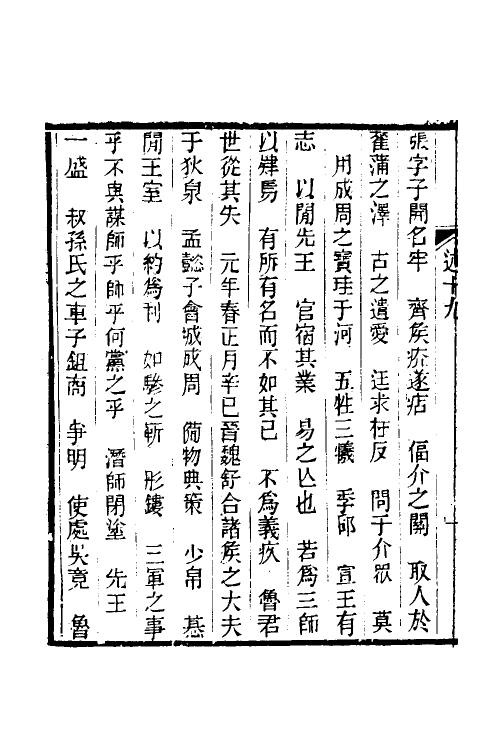 十九
張字子開名牢　齊矦疥遂痁　偪介之關　取人於
萑蒲之澤　古之遺愛　迋求枉反　問于介眾　莫
用成周之寶珪于河　五牲三犧　季郈　宣王有
志　以閒先王　官宿其業　易之亾也　若爲三師
以肄焉　有所有名而不如其已　不爲義疚　魯君
世從其失　元年春正月辛巳晉魏舒合諸矦之大夫
于狄泉　孟懿子會城成周　備物典策　少帛　惎
閒王室　以約爲刊　如驂之靳　彤鏤　三軍之事
乎不與謀師乎師乎何黨之乎　潛師閉塗　先王
一盛　叔孫氏之車子鉏商　爭明　使處吳竟　魯